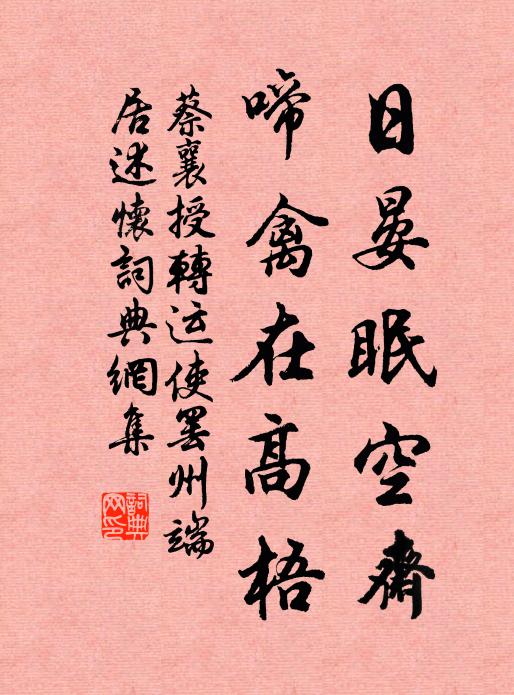 日晏眠空齋
啼禽在高梧
蔡襄授轉运使罢州端
居述懷詞典網集
詞典网印